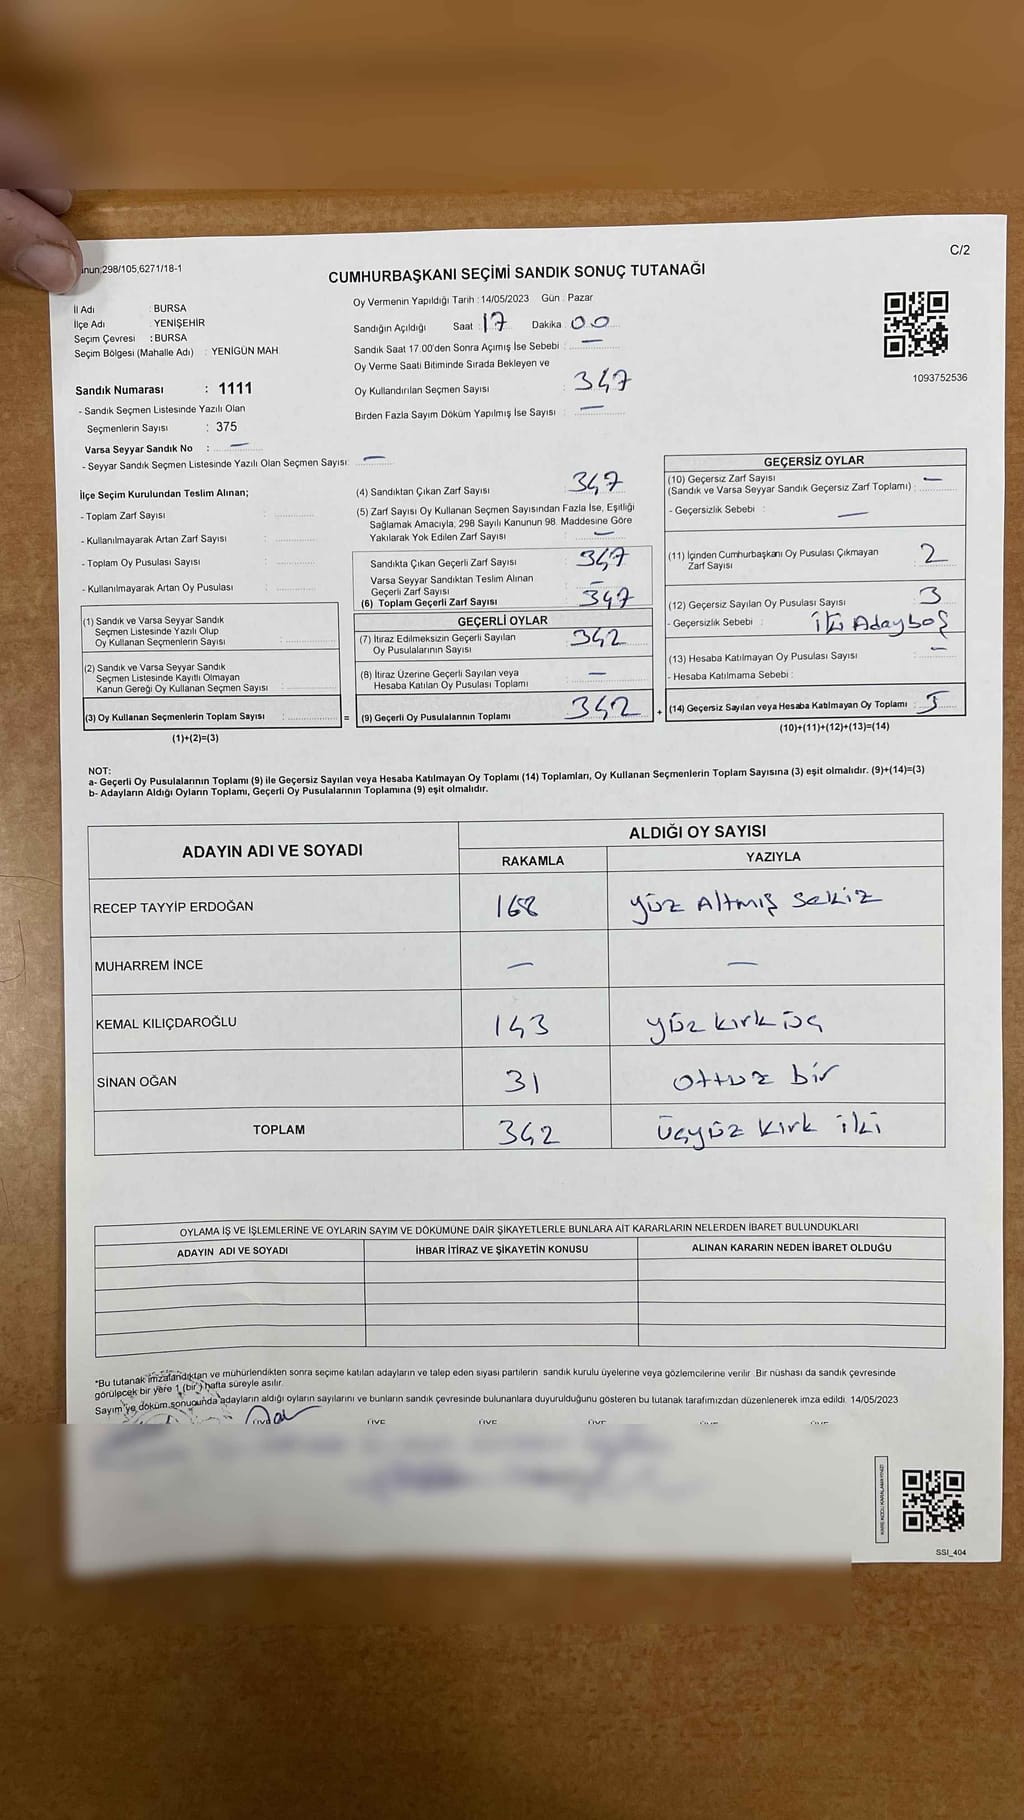 C/2
nun:298/105,6271/18-1
CUMHURBAŞKANI SEÇİMİ SANDIK SONUÇ TUTANAĞI
İl Adı : BURSA
İlçe Adı : YENİŞEHİR
Seçim Çevresi : BURSA
Seçim Bölgesi (Mahalle Adı) : YENİGÜN MAH
Sandık Numarası : 1111
- Sandık Seçmen Listesinde Yazılı Olan
Seçmenlerin Sayısı : 375
Varsa Seyyar Sandık No : —
- Seyyar Sandık Seçmen Listesinde Yazılı Olan Seçmen Sayısı: —
Oy Vermenin Yapıldığı Tarih : 14/05/2023 Gün : Pazar
Sandığın Açıldığı Saat : 17 Dakika : 00
Sandık Saat 17:00'den Sonra Açımış İse Sebebi : —
Oy Verme Saati Bitiminde Sırada Bekleyen ve
Oy Kullandırılan Seçmen Sayısı : 347
Birden Fazla Sayım Döküm Yapılmış İse Sayısı : —
1093752536
İlçe Seçim Kurulundan Teslim Alınan;
- Toplam Zarf Sayısı :
- Kullanılmayarak Artan Zarf Sayısı :
- Toplam Oy Pusulası Sayısı :
- Kullanılmayarak Artan Oy Pusulası :
(1) Sandık ve Varsa Seyyar Sandık
Seçmen Listesinde Yazılı Olup
Oy Kullanan Seçmenlerin Sayısı :
(2) Sandık ve Varsa Seyyar Sandık
Seçmen Listesinde Kayıtlı Olmayan
Kanun Gereği Oy Kullanan Seçmen Sayısı :
(3) Oy Kullanan Seçmenlerin Toplam Sayısı :
=
(1)+(2)=(3)
(4) Sandıktan Çıkan Zarf Sayısı : 347
(5) Zarf Sayısı Oy Kullanan Seçmen Sayısından Fazla İse, Eşitliği
Sağlamak Amacıyla, 298 Sayılı Kanunun 98. Maddesine Göre
Yakılarak Yok Edilen Zarf Sayısı : —
Sandıkta Çıkan Geçerli Zarf Sayısı : 347
Varsa Seyyar Sandıktan Teslim Alınan
Geçerli Zarf Sayısı : —
(6) Toplam Geçerli Zarf Sayısı : 347
GEÇERLİ OYLAR
(7) İtiraz Edilmeksizin Geçerli Sayılan
Oy Pusulalarının Sayısı : 342
(8) İtiraz Üzerine Geçerli Sayılan veya
Hesaba Katılan Oy Pusulası Toplamı : —
(9) Geçerli Oy Pusulalarının Toplamı : 342
+
GEÇERSİZ OYLAR
(10) Geçersiz Zarf Sayısı
(Sandık ve Varsa Seyyar Sandık Geçersiz Zarf Toplamı) : —
- Geçersizlik Sebebi : —
(11) İçinden Cumhurbaşkanı Oy Pusulası Çıkmayan
Zarf Sayısı : 2
(12) Geçersiz Sayılan Oy Pusulası Sayısı : 3
- Geçersizlik Sebebi : İki Aday boş
(13) Hesaba Katılmayan Oy Pusulası Sayısı : —
- Hesaba Katılmama Sebebi :
(14) Geçersiz Sayılan veya Hesaba Katılmayan Oy Toplamı : 5
(10)+(11)+(12)+(13)=(14)
NOT:
a- Geçerli Oy Pusulalarının Toplamı (9) ile Geçersiz Sayılan veya Hesaba Katılmayan Oy Toplamı (14) Toplamları, Oy Kullanan Seçmenlerin Toplam Sayısına (3) eşit olmalıdır. (9)+(14)=(3)
b- Adayların Aldığı Oyların Toplamı, Geçerli Oy Pusulalarının Toplamına (9) eşit olmalıdır.
ADAYIN ADI VE SOYADI
ALDIĞI OY SAYISI
RAKAMLA YAZIYLA
RECEP TAYYİP ERDOĞAN 168 yüz Altmış sekiz
MUHARREM İNCE — —
KEMAL KILIÇDAROĞLU 143 yüz kırk üç
SİNAN OĞAN 31 ottuz bir
TOPLAM 342 üçyüz kırk iki
OYLAMA İŞ VE İŞLEMLERİNE VE OYLARIN SAYIM VE DÖKÜMÜNE DAİR ŞİKAYETLERLE BUNLARA AİT KARARLARIN NELERDEN İBARET BULUNDUKLARI
ADAYIN ADI VE SOYADI İHBAR İTİRAZ VE ŞİKAYETİN KONUSU ALINAN KARARIN NEDEN İBARET OLDUĞU
*Bu tutanak imzalandıktan ve mühürlendikten sonra seçime katılan adayların ve talep eden siyasi partilerin sandık kurulu üyelerine veya gözlemcilerine verilir. Bir nüshası da sandık çevresinde
görülecek bir yere 1 (bir) hafta süreyle asılır.
Sayım ve döküm sonucunda adayların aldığı oyların sayılarını ve bunların sandık çevresinde bulunanlara duyurulduğunu gösteren bu tutanak tarafımızdan düzenlenerek imza edildi. 14/05/2023
ÜYE ÜYE ÜYE ÜYE ÜYE
SSI_404